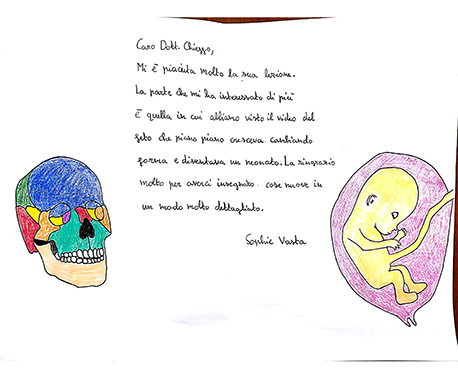 Caro Dott. Chiezzo,
Mi è piaciuta molto la sua lezione.
La parte che mi ha interessato di più
è quella in cui abbiamo visto il video del
feto che piano piano cresceva cambiando
forma e diventava un neonato. La ringrazio
molto per averci insegnato cose nuove in
un modo molto dettagliato.
Sophie Vasta